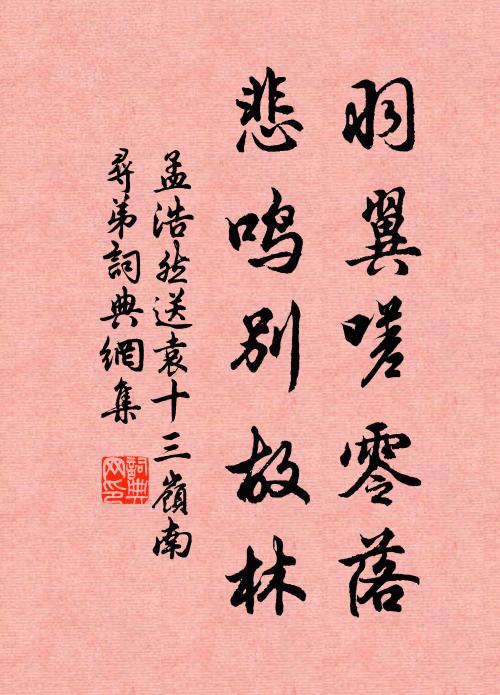 羽翼嗟零落
悲鸣别故林
孟浩然送袁十三嶺南
尋弟詞典網集
詞典网印